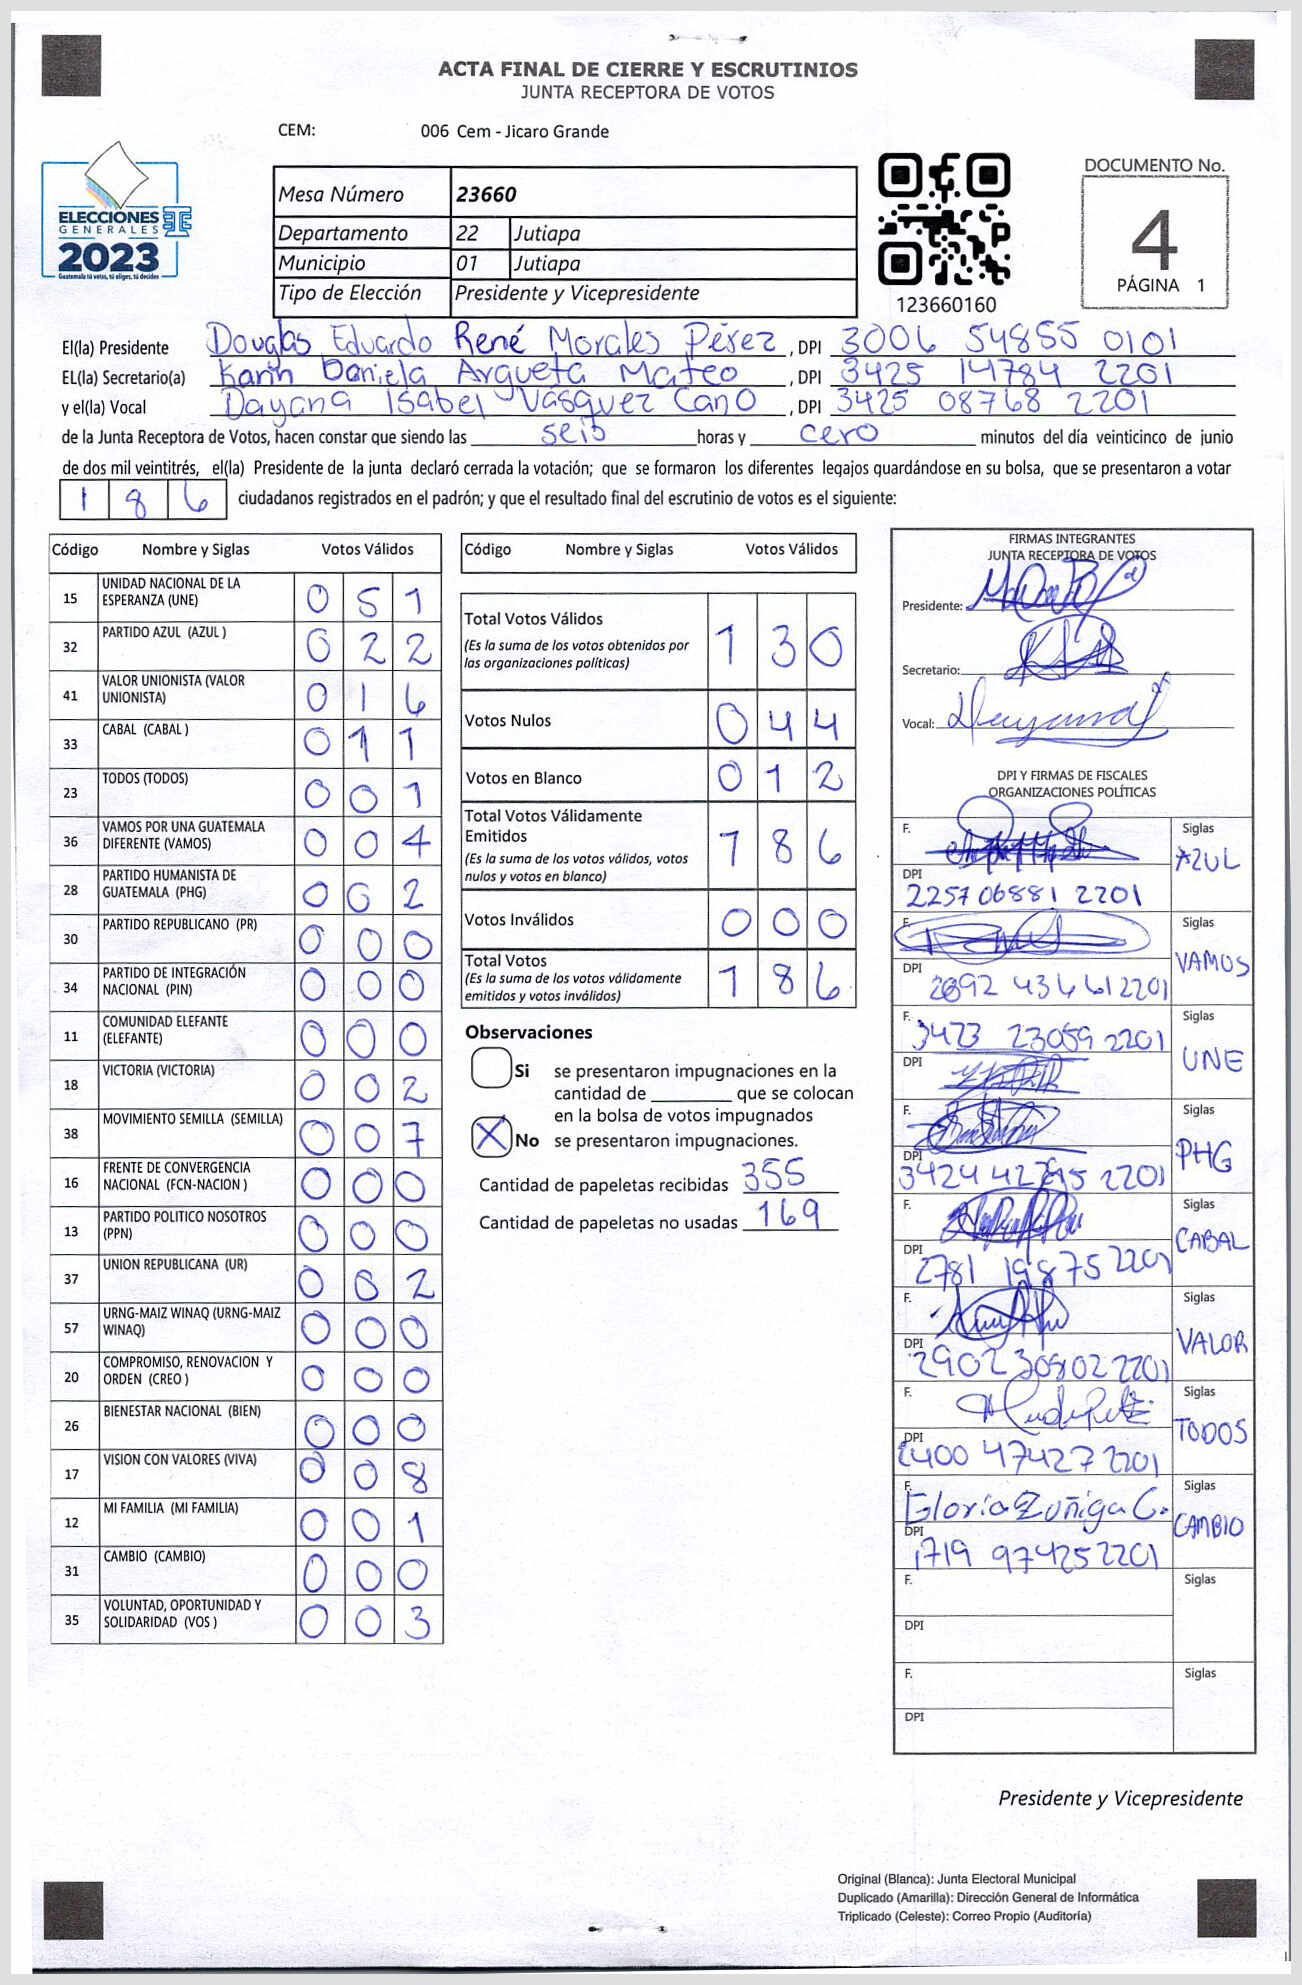 ACTA FINAL DE CIERRE Y ESCRUTINIOS
JUNTA RECEPTORA DE VOTOS
CEM: 006 Cem - Jicaro Grande
ELECCIONES
GENERALES
2023
Guatemala tú votas, tú eliges, tú decides
Mesa Número 23660
Departamento 22 Jutiapa
Municipio 01 Jutiapa
Tipo de Elección Presidente y Vicepresidente
123660160
DOCUMENTO No.
4
PÁGINA 1
El(la) Presidente Douglas Eduardo René Morales Pérez, DPI 3006 54855 0101
EL(la) Secretario(a) Karin Daniela Argueta Mateo, DPI 3425 14784 2201
y el(la) Vocal Dayana Isabel Vásquez Cano, DPI 3425 08768 2201
de la Junta Receptora de Votos, hacen constar que siendo las seis horas y cero minutos del día veinticinco de junio
de dos mil veintitrés, el(la) Presidente de la junta declaró cerrada la votación; que se formaron los diferentes legajos guardándose en su bolsa, que se presentaron a votar
186 ciudadanos registrados en el padrón; y que el resultado final del escrutinio de votos es el siguiente:
Código Nombre y Siglas Votos Válidos
15 UNIDAD NACIONAL DE LA ESPERANZA (UNE) 051
32 PARTIDO AZUL (AZUL ) 022
41 VALOR UNIONISTA (VALOR UNIONISTA) 016
33 CABAL (CABAL ) 011
23 TODOS (TODOS) 001
36 VAMOS POR UNA GUATEMALA DIFERENTE (VAMOS) 004
28 PARTIDO HUMANISTA DE GUATEMALA (PHG) 002
30 PARTIDO REPUBLICANO (PR) 000
34 PARTIDO DE INTEGRACIÓN NACIONAL (PIN) 000
11 COMUNIDAD ELEFANTE (ELEFANTE) 000
18 VICTORIA (VICTORIA) 002
38 MOVIMIENTO SEMILLA (SEMILLA) 007
16 FRENTE DE CONVERGENCIA NACIONAL (FCN-NACION ) 000
13 PARTIDO POLITICO NOSOTROS (PPN) 000
37 UNION REPUBLICANA (UR) 002
57 URNG-MAIZ WINAQ (URNG-MAIZ WINAQ) 000
20 COMPROMISO, RENOVACION Y ORDEN (CREO ) 000
26 BIENESTAR NACIONAL (BIEN) 000
17 VISION CON VALORES (VIVA) 008
12 MI FAMILIA (MI FAMILIA) 001
31 CAMBIO (CAMBIO) 000
35 VOLUNTAD, OPORTUNIDAD Y SOLIDARIDAD (VOS ) 003
Código Nombre y Siglas Votos Válidos
Total Votos Válidos 130
(Es la suma de los votos obtenidos por
las organizaciones políticas)
Votos Nulos 044
Votos en Blanco 012
Total Votos Válidamente
Emitidos 186
(Es la suma de los votos válidos, votos
nulos y votos en blanco)
Votos Inválidos 000
Total Votos 186
(Es la suma de los votos válidamente
emitidos y votos inválidos)
Observaciones
Si se presentaron impugnaciones en la
cantidad de ________ que se colocan
en la bolsa de votos impugnados
X No se presentaron impugnaciones.
Cantidad de papeletas recibidas 355
Cantidad de papeletas no usadas 169
FIRMAS INTEGRANTES
JUNTA RECEPTORA DE VOTOS
Presidente:
Secretario:
Vocal:
DPI Y FIRMAS DE FISCALES
ORGANIZACIONES POLÍTICAS
F. Siglas AZUL
DPI 2257 06881 2201
F. Siglas VAMOS
DPI
F. Siglas UNE
3423 23059 2201
DPI
F. Siglas PHG
DPI
F. Siglas CABAL
DPI 2781 19875 2201
F. Siglas VALOR
DPI
F. Siglas TODOS
DPI 2400 47427 2201
F. Gloria Zuñiga C. Siglas CAMBIO
DPI 1719 97425 2201
F. Siglas
DPI
F. Siglas
DPI
Presidente y Vicepresidente
Original (Blanca): Junta Electoral Municipal
Duplicado (Amarilla): Dirección General de Informática
Triplicado (Celeste): Correo Propio (Auditoría)